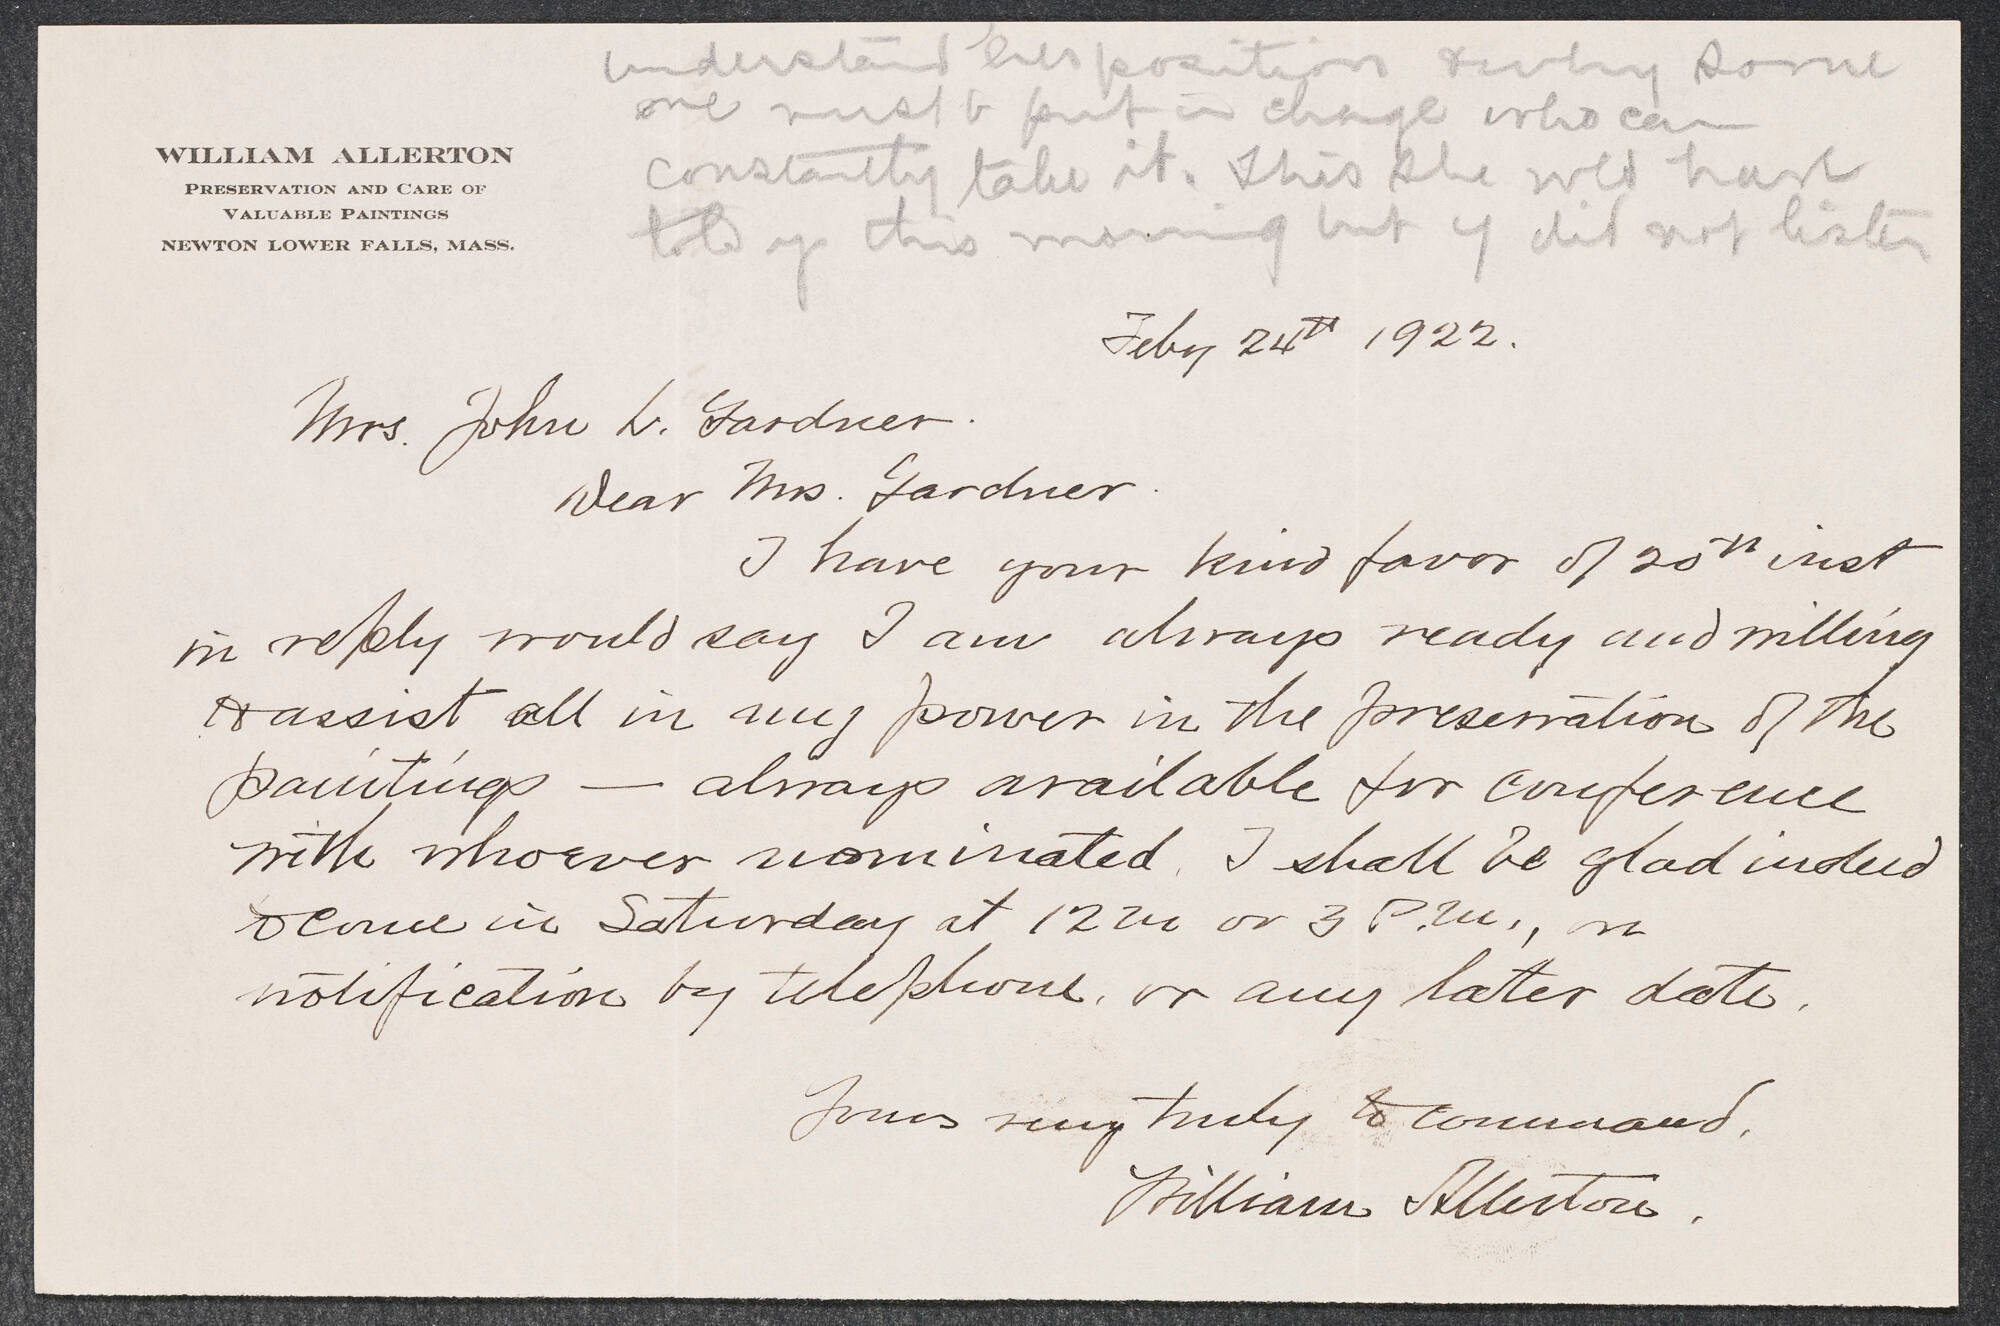 understand her position & why some
one must b put in charge who can
constantly take it. This she wld have
told y this morning but y did not listen
WILLIAM ALLERTON
PRESERVATION AND CARE OF
VALUABLE PAINTINGS
NEWTON LOWER FALLS, MASS.
Feby 24th 1922.
Mrs. John L. Gardner.
Dear Mrs. Gardner.
I have your kind favor of 20th inst
in reply would say I am always ready and willing
to assist all in my power in the preservation of the
paintings — always available for conference
with whoever nominated. I shall be glad indeed
to come in Saturday at 12 m or 3 P.M., on
notification by telephone, or any later date.
Yours very truly to command.
William Allerton.